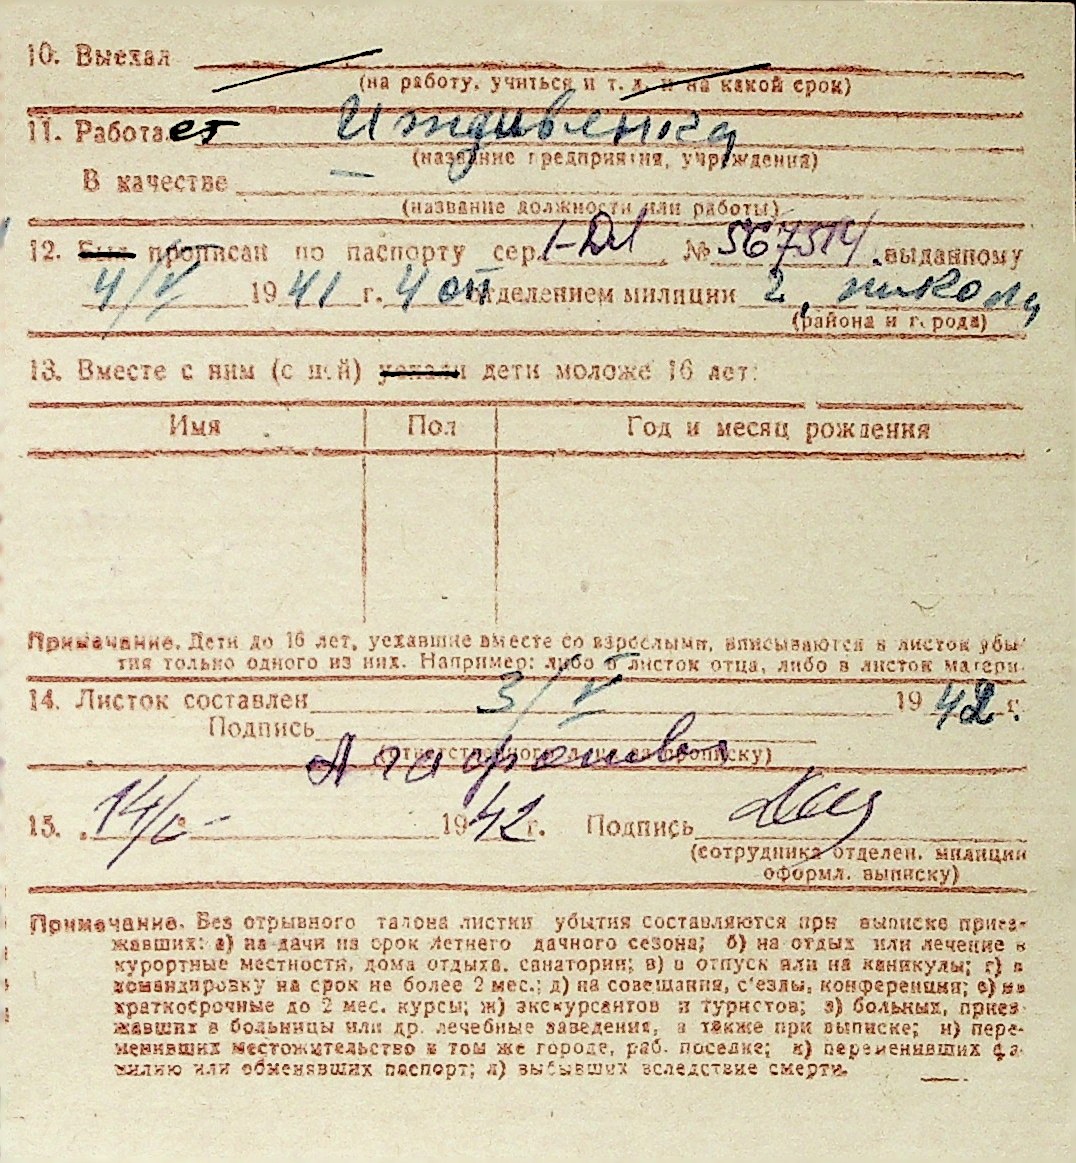 10. Выехал
(на работу, учиться и т. д. и на какой срок)
11. Работает Иждивенка
(название предприятия, учреждения)
В качестве
(название должности или работы)
12. Был прописан по паспорту сер. № 567514 выданному
4/V 1941 г. 4 от отделением милиции г. Никола
(района и города)
13. Вместе с ним (с ней) уехали дети моложе 16 лет:
Имя Пол Год и месяц рождения
Примечание. Дети до 16 лет, уехавшие вместе со взрослыми, вписываются в листок убы-
тия только одного из них. Например: либо в листок отца, либо в листок матери.
14. Листок составлен 3/V 1942 г.
Подпись Агафонова
(ответственного лица за прописку)
15. 1942 г. Подпись
(сотрудника отделен. милиции
оформл. выписку)
Примечание. Без отрывного талона листки убытия составляются при выписке приез-
жавших: а) на дачи на срок летнего дачного сезона; б) на отдых или лечение в
курортные местности, дома отдыха, санатории; в) в отпуск или на каникулы; г) в
командировку на срок не более 2 мес.; д) на совещания, с'езды, конференции; е) на
краткосрочные до 2 мес. курсы; ж) экскурсантов и туристов; з) больных, приез-
жавших в больницы или др. лечебные заведения, а также при выписке; и) пере-
менивших местожительство в том же городе, раб. поселке; к) переменивших фа-
милию или обменявших паспорт; л) выбывших вследствие смерти.